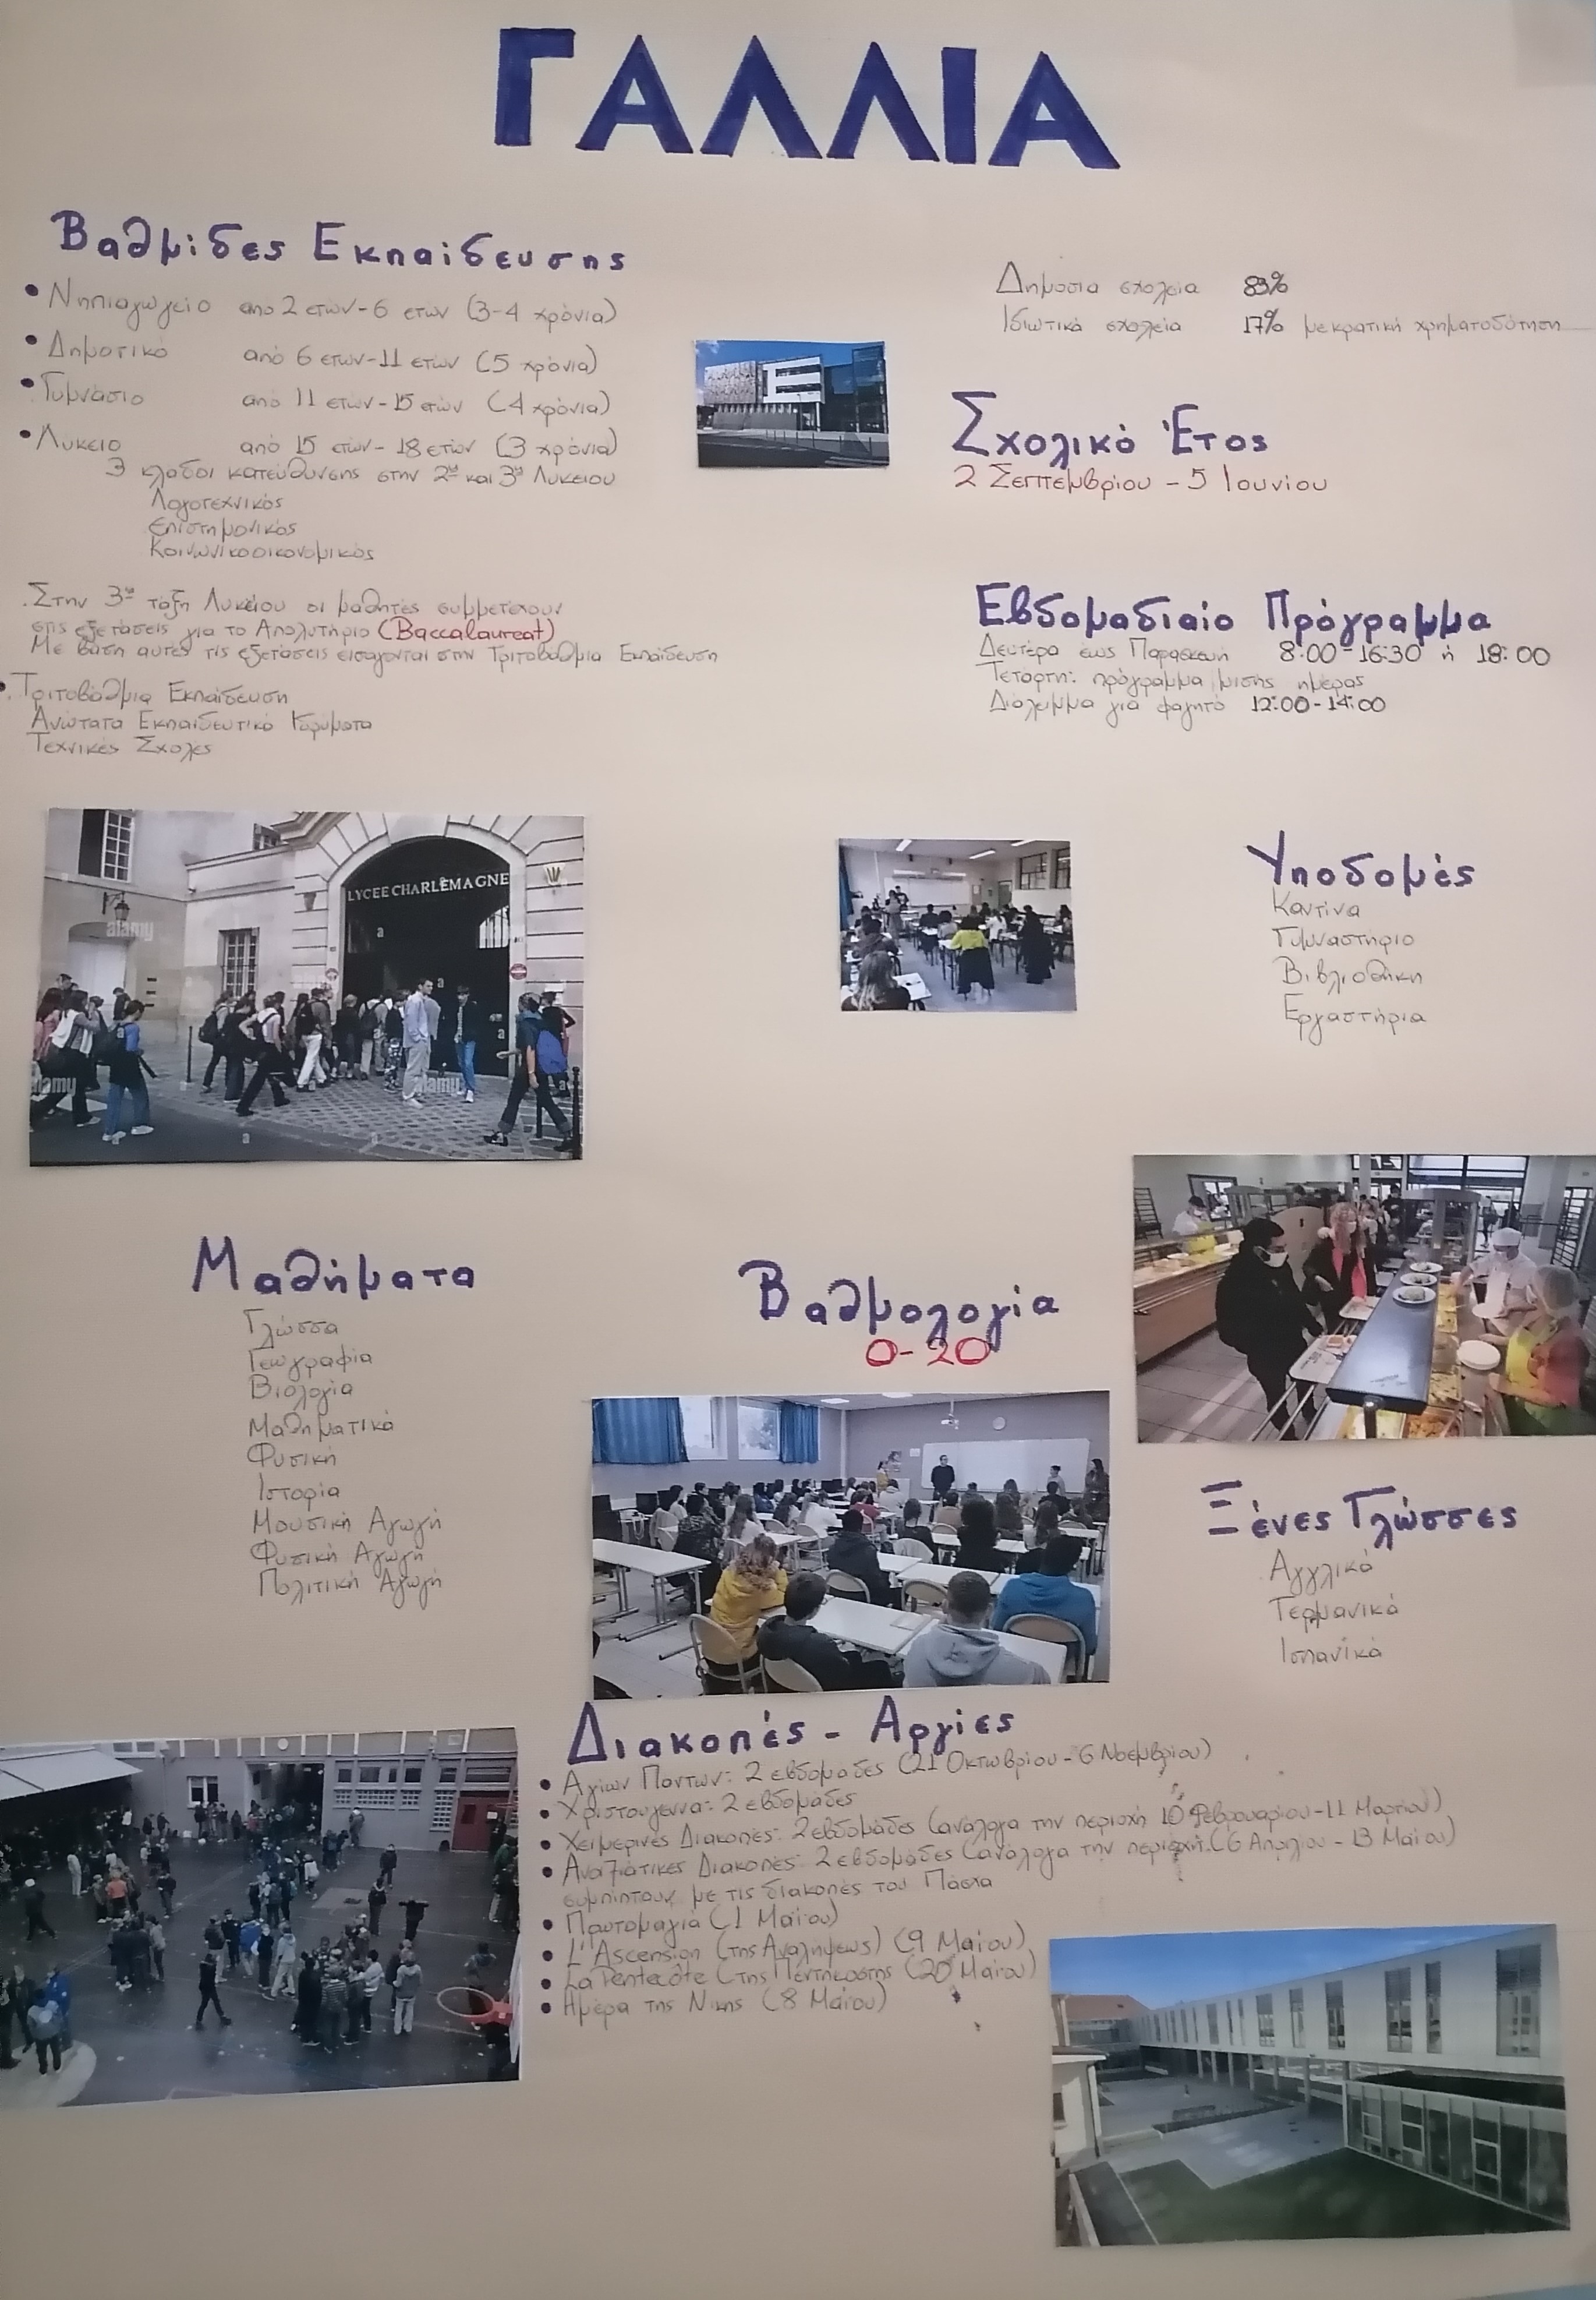 ΓΑΛΛΙΑ
Βαθμίδες Εκπαίδευσης
• Νηπιαγωγείο από 2 ετών-6 ετών (3-4 χρόνια)
• Δημοτικό από 6 ετών-11 ετών (5 χρόνια)
• Γυμνάσιο από 11 ετών-15 ετών (4 χρόνια)
• Λύκειο από 15 ετών-18 ετών (3 χρόνια)
3 κλάδοι κατεύθυνσης στην 2α και 3η Λυκείου
Λογοτεχνικός
Επιστημονικός
Κοινωνικοοικονομικός
. Στην 3η τάξη Λυκείου οι μαθητές συμμετέχουν
στις εξετάσεις για το Απολυτήριο (Baccalaureat)
Με βάση αυτές τις εξετάσεις εισάγονται στην Τριτοβάθμια Εκπαίδευση
• Τριτοβάθμια Εκπαίδευση
Ανώτατα Εκπαιδευτικά Ιδρύματα
Τεχνικές Σχολές
Δημόσια σχολεία 83%
Ιδιωτικά σχολεία 17% με κρατική χρηματοδότηση
Σχολικό Έτος
2 Σεπτεμβρίου - 5 Ιουνίου
Εβδομαδιαίο Πρόγραμμα
Δευτέρα έως Παρασκευή 8:00-16:30 ή 18:00
Τετάρτη: πρόγραμμα μισής ημέρας
Διάλειμμα για φαγητό 12:00-14:00
LYCEE CHARLEMAGNE
alamy
alamy
alamy
Υποδομές
Καντίνα
Γυμναστήριο
Βιβλιοθήκη
Εργαστήρια
Μαθήματα
Γλώσσα
Γεωγραφία
Βιολογία
Μαθηματικά
Φυσική
Ιστορία
Μουσική Αγωγή
Φυσική Αγωγή
Πολιτική Αγωγή
Βαθμολογία
0-20
Ξένες Γλώσσες
Αγγλικά
Γερμανικά
Ισπανικά
Διακοπές - Αργίες
• Αγίων Πάντων: 2 εβδομάδες (21 Οκτωβρίου - 6 Νοεμβρίου)
• Χριστούγεννα: 2 εβδομάδες
• Χειμερινές Διακοπές: 2 εβδομάδες (ανάλογα την περιοχή 10 Φεβρουαρίου-11 Μαρτίου)
• Ανοιξιάτικες Διακοπές: 2 εβδομάδες (ανάλογα την περιοχή (6 Απριλίου - 13 Μαίου)
συμπίπτουν με τις διακοπές του Πάσχα
• Πρωτομαγιά (1 Μαίου)
• L'Ascension (της Αναλήψεως) (9 Μαίου)
• La Pentecôte (της Πεντηκοστής (20 Μαίου)
• Ημέρα της Νίκης (8 Μαίου)